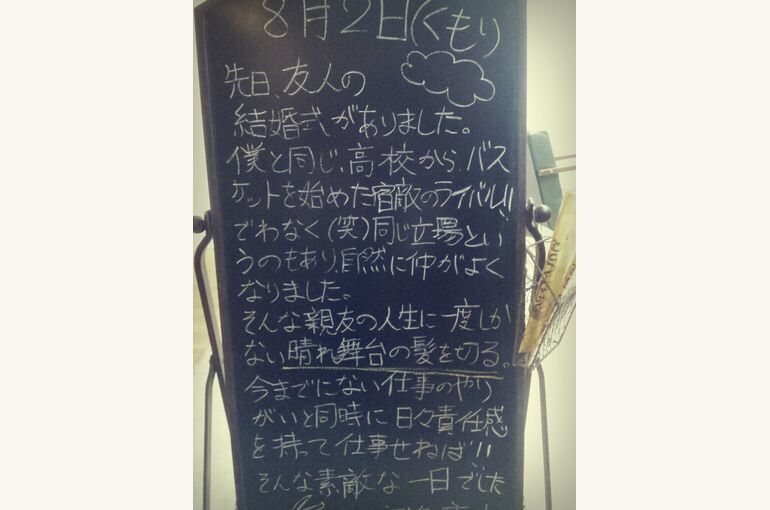 8月2日(くもり)
先日、友人の
結婚式がありました。
僕と同じ、高校から、バス
ケットを始めた宿敵のライバル!!
でわなく(笑)同じ立場とい
うのもあり、自然に仲がよく
なりました。
そんな親友の人生に一度しか
ない晴れ舞台の髪を切る。
今までにない仕事のやり
がいと同時に日々責任感
を持って仕事せねば!!
そんな素敵な一日でした